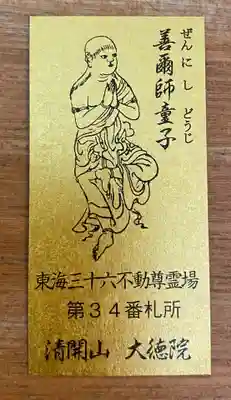 ぜんにし どうじ
善爾師童子
東海三十六不動尊霊場
第34番札所
清開山 大徳院